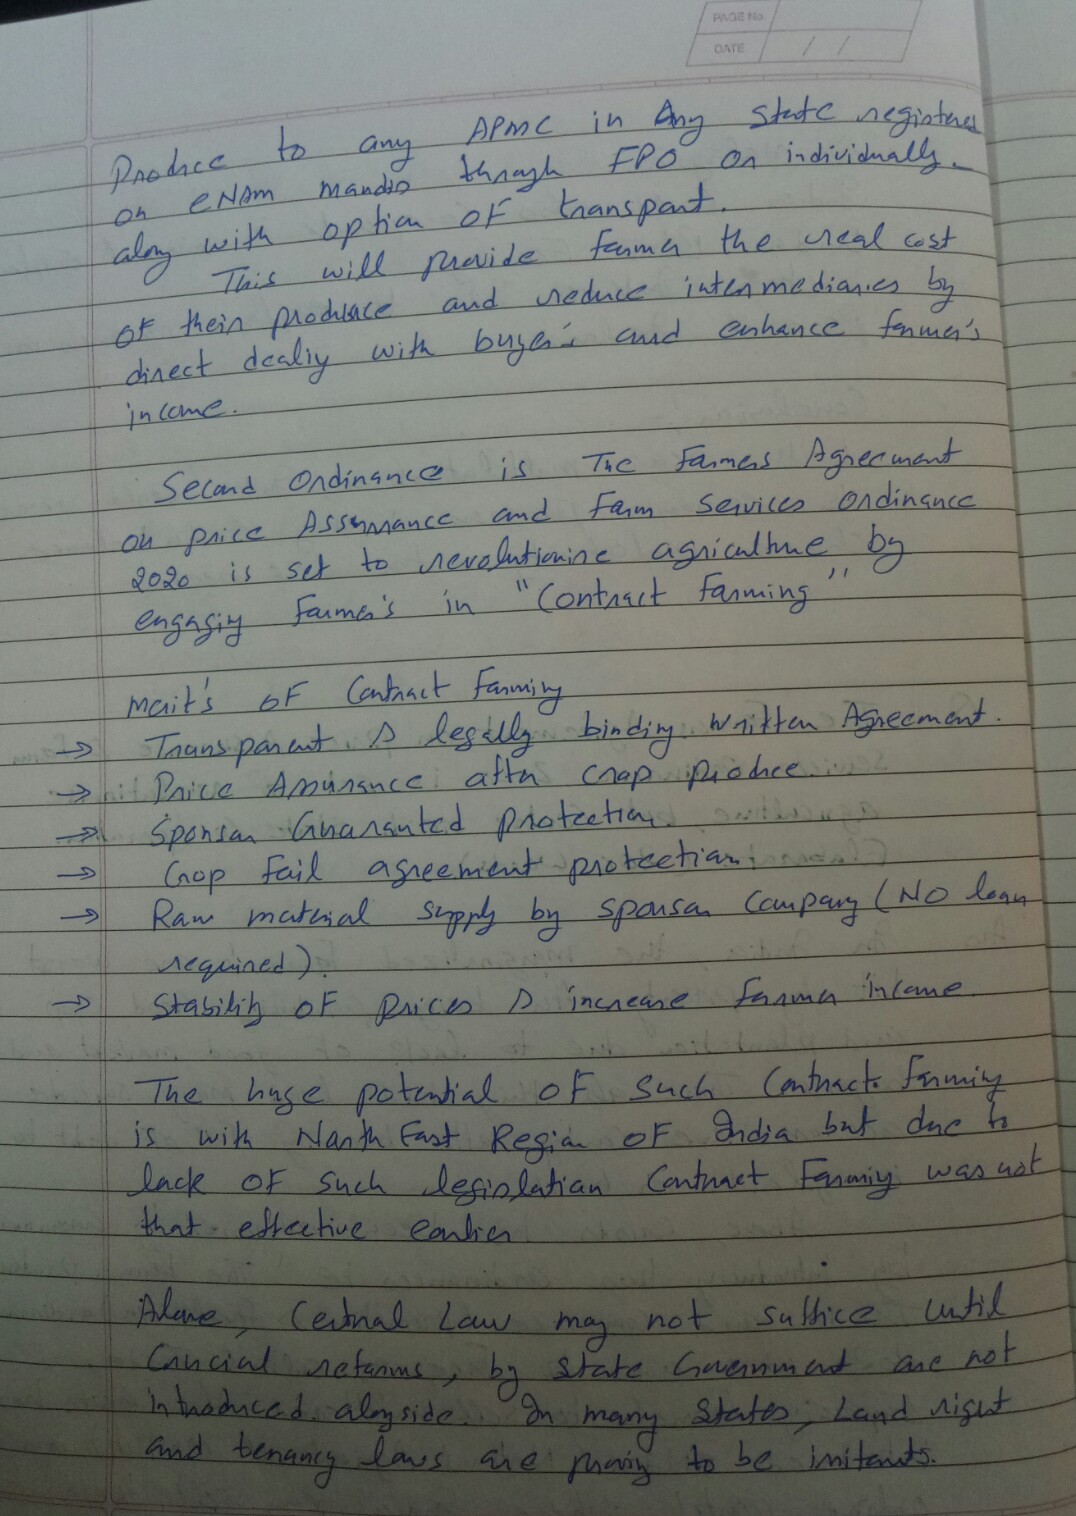 PAGE No.
DATE / /
Produce to any APMC in Any State registered
on eNAM mandis through FPO or individually.
along with option of transport.
This will provide farmer the real cost
of their produce and reduce intermediaries by
direct dealing with buyers and enhance farmer's
income.
Second Ordinance is The Farmers Agreement
on Price Assurance and Farm Services Ordinance
2020 is set to revolutionise agriculture by
engaging Farmer's in "Contract Farming"
Merit's of Contract Farming
→ Transparent & legally binding written Agreement.
→ Price Assurance after crop produce
→ Sponsor Guaranted Protection
→ Crop fail agreement protection.
→ Raw material supply by sponsor company (No loan
required).
→ Stability of prices & increase farmer income
The huge potential of such Contract farming
is with North East Region of India but due to
lack of such legislation Contract Farming was not
that effective earlier
Alone, Central Law may not suffice until
Crucial reforms, by State Government are not
introduced alongside. In many States, Land right
and tenancy laws are proving to be irritants.